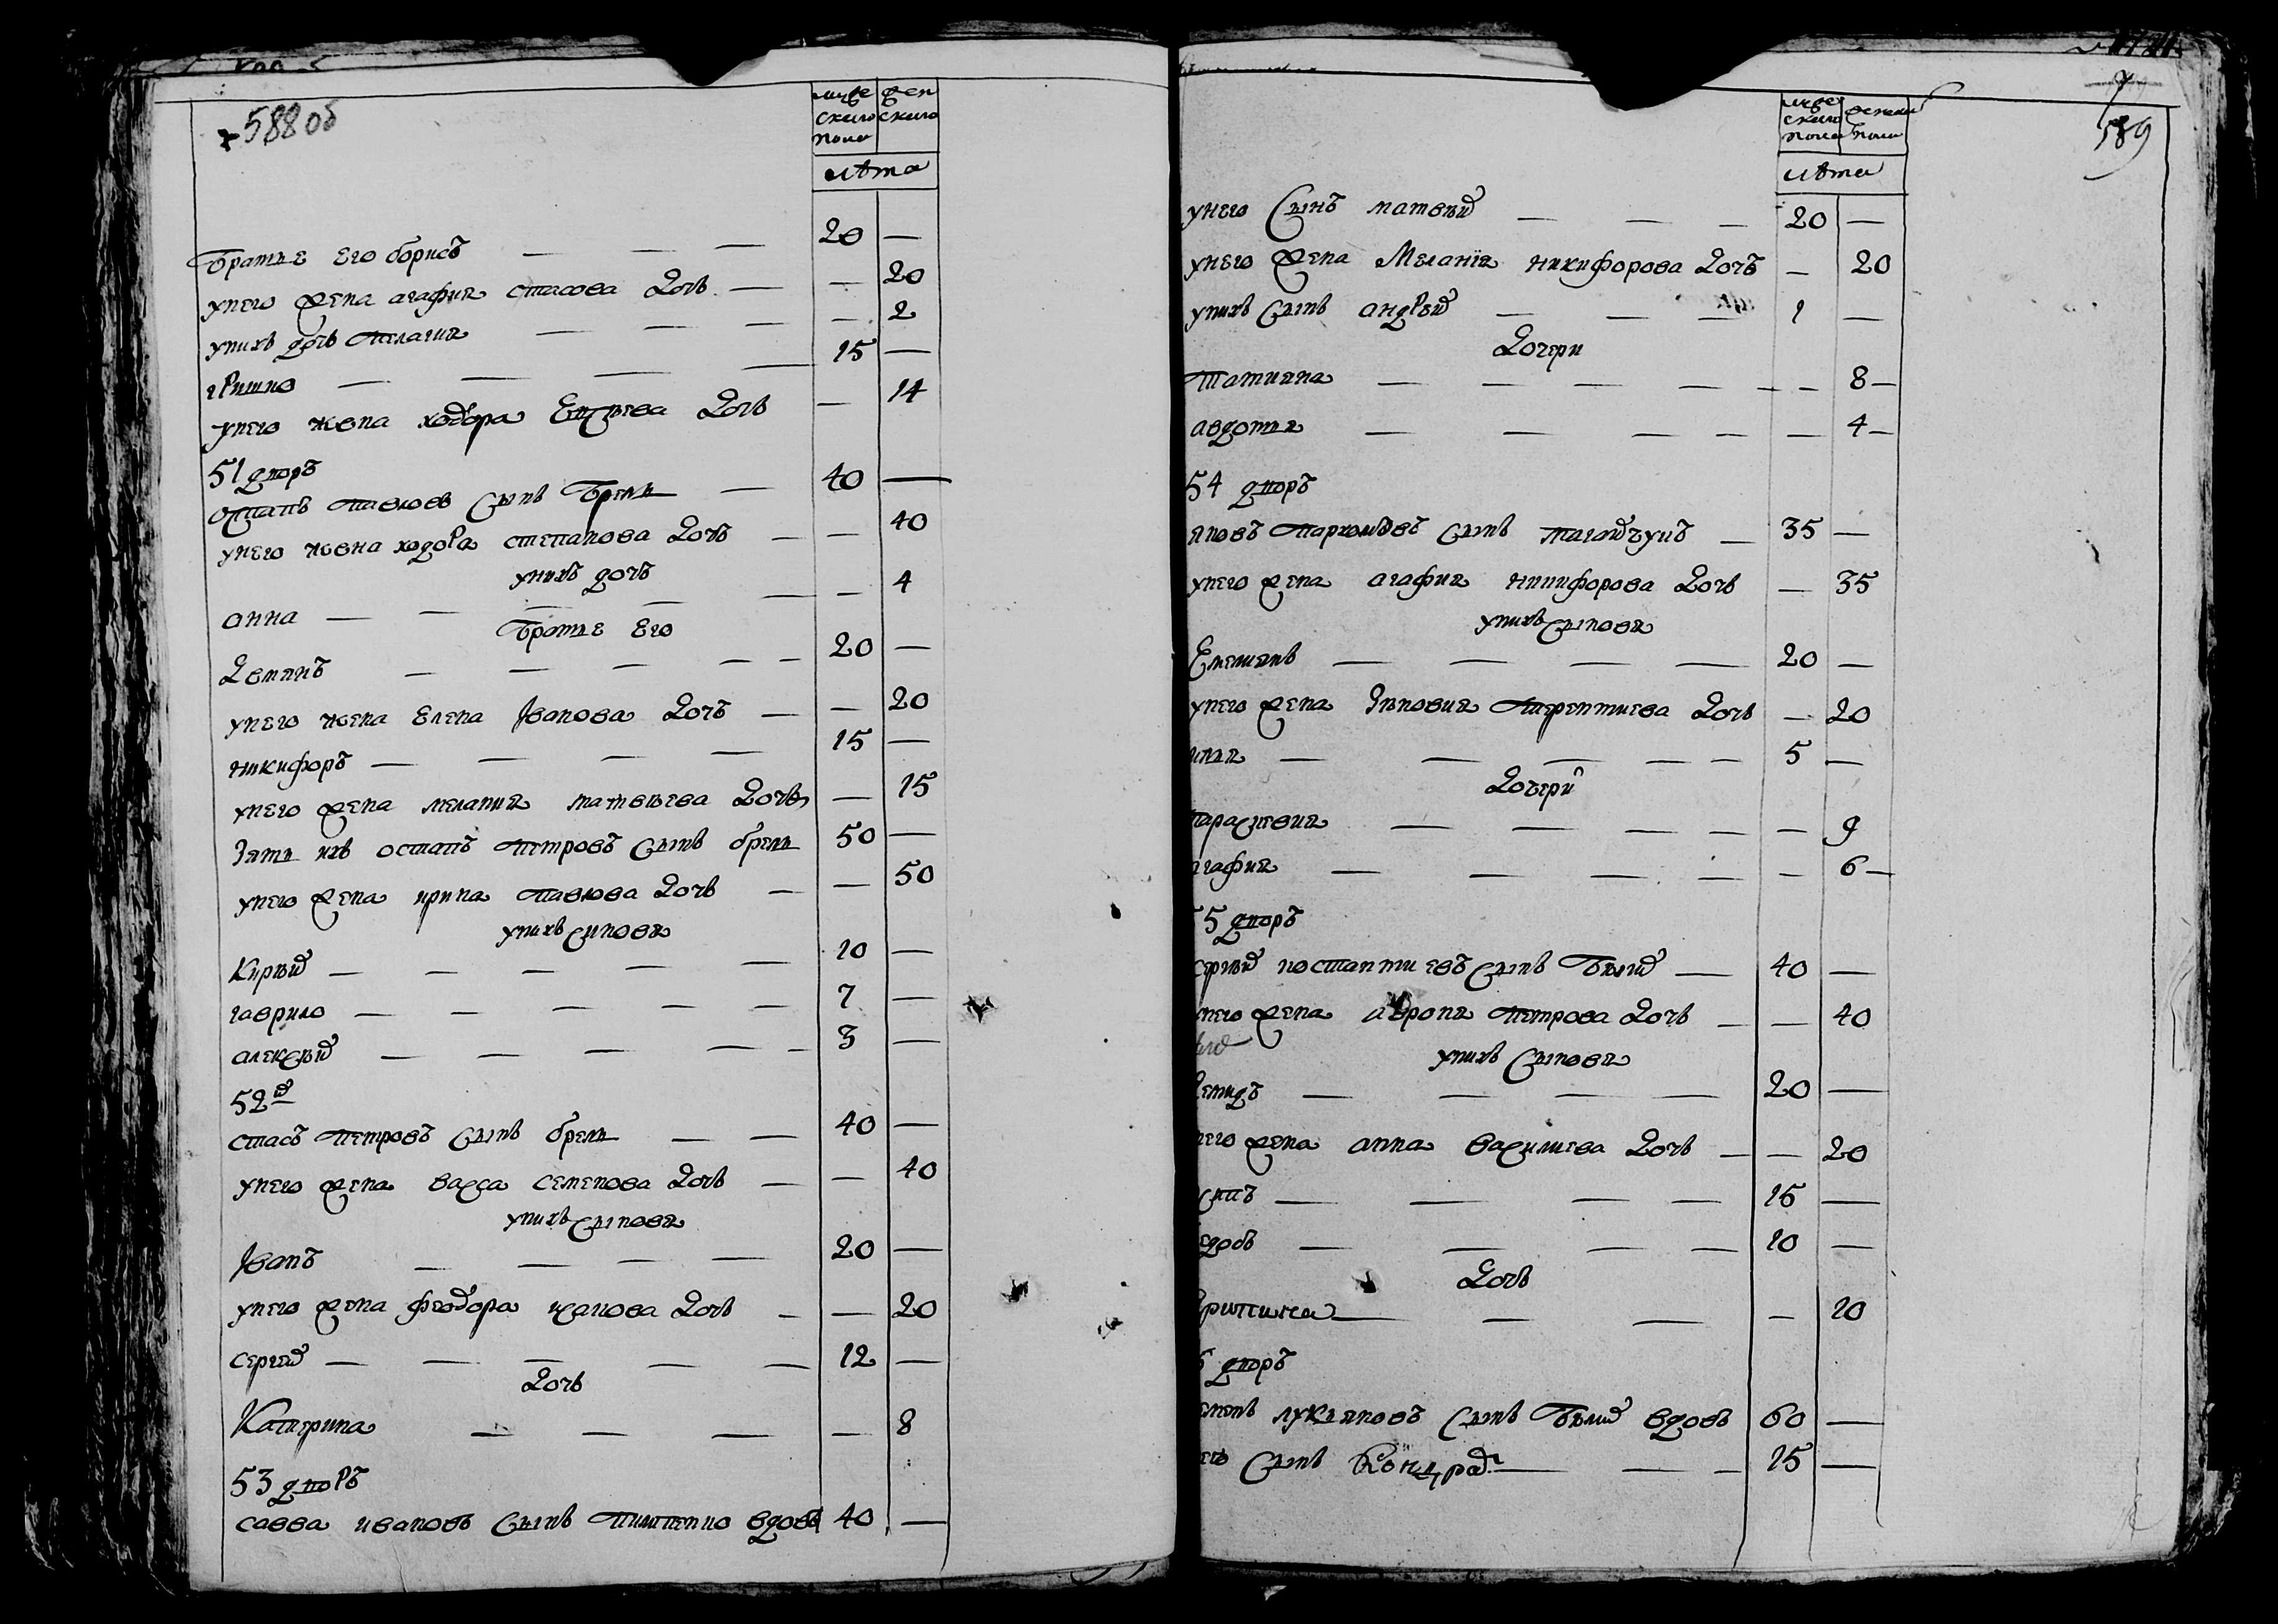 588 об
муже ского пола
жен ского
лѣта
братъе его борисъ — — — 20 —
унего жена агафия стасова дочь — — 20
унихъ дочь пелагия — — — — 2
гришко — — — — 15 —
унего жена ходора дочь — 14
51 дворъ
остапъ павловъ сынъ брель — 40 —
унего жена ходора степанова дочь — — 40
унихъ дочь
анна — — — — — — 4
братъе его
демянъ — — — — — 20 —
унего жена елена Иванова дочъ — — 20
никифоръ — — — — 15 —
унего жена мелания матвѣева дочь — 15
зять ихъ остапъ петровъ сынъ брель 50 —
унего жена ирина павлова дочь — — 50
унихъ синовя
Кирѣй — — — — — 10 —
гаврило — — — — — 7 —
алексѣй — — — — — 3 —
52й
стасъ петровъ сынъ брель — — 40 —
унего жена васса семенова дочь — — 40
унихъ сыновя
Иванъ — — — — 20 —
унего жена феодора дочь — — 20
сергей — — — — — 12 —
дочь
Катерина — — — — 8
53 дворъ
савва ивановъ сынъ вдовъ 40 —
589
муже ского пола
женски пола
лѣта
унего сынъ матвѣй — — — 20 —
унего жена Меланія никифорова дочъ — 20
унихъ сынъ андрей — — — 1 —
дочери
татияна — — — — — — 8 —
авдотия — — — — — 4 —
54 дворъ
яковъ пархомовъ сынъ — 35 —
унего жена агафия никифорова дочь — 35
унихъ сыновя
Емелиянъ — — — — 20 —
унего жена зѣновия терентиева дочь — 20
илия — — — — — 5 —
дочери
параскевия — — — — — 9
агафия — — — — — 6 —
55 дворъ
сергѣй костантиевъ сынъ бѣлий — 40 —
унего жена петрова дочь — — 40
унихъ сыновя
демидъ — — — — 20 —
унего жена анна василиева дочь — — 20
— — — — 15 —
— — — — 10 —
дочь
— — — — 10
6 дворъ
лукъяновъ сынъ бѣлий вдовъ 60 —
его сынъ Кондрат — — — 15 —